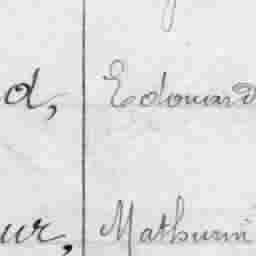 d, Edouard
ur, Mathurin